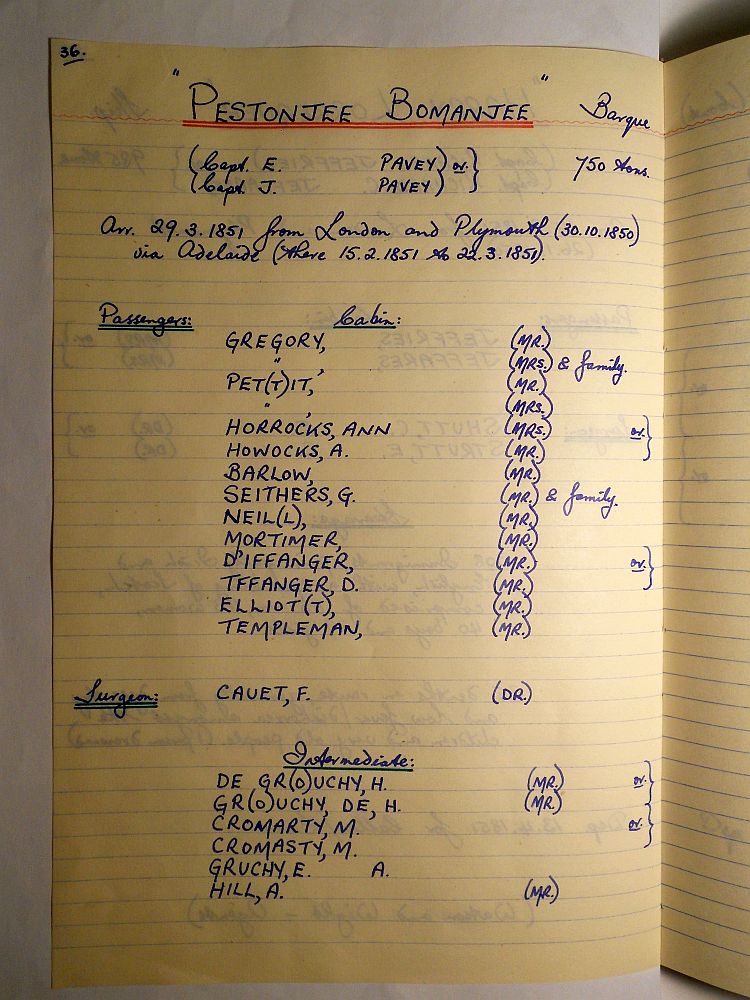 36.
" PESTONJEE BOMANJEE " Barque
(Capt. E. PAVEY) or. 750 tons.
(Capt. J. PAVEY)
Arr. 29.3.1851 from London and Plymouth (30.10.1850)
via Adelaide (there 15.2.1851 to 22.3.1851).
Passengers: Cabin:
GREGORY, (MR.)
" , (MRS.) & family.
PET(T)IT, (MR.)
" , (MRS.)
HORROCKS, ANN (MRS.) or.
HOWOCKS, A. (MR.)
BARLOW, (MR.)
SEITHERS, G. (MR.) & family.
NEIL(L), (MR.)
MORTIMER, (MR.)
D'IFFANGER, (MR.) or.
TFFANGER, D. (MR.)
ELLIOT(T), (MR.)
TEMPLEMAN, (MR.)
Surgeon: CAUET, F. (DR.)
Intermediate:
DE GR(O)UCHY, H. (MR.) or.
GR(O)UCHY, DE, H. (MR.)
CROMARTY, M. or.
CROMASTY, M.
GRUCHY, E. A.
HILL, A. (MR.)